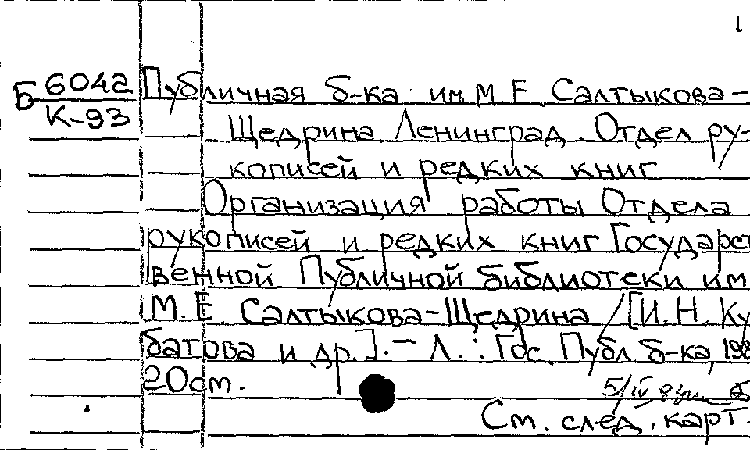 1
Б 6042 Публичная б-ка им. М. Е. Салтыкова-
К-93 Щедрина, Ленинград. Отдел ру-
кописей и редких книг
Организация работы Отдела
рукописей и редких книг Государст
венной Публичной библиотеки им
М. Е Салтыкова-Щедрина / [И. Н. Ку
батова и др.]. — Л. : Гос. Публ. б-ка, 198
20 см.
См. след. карт.